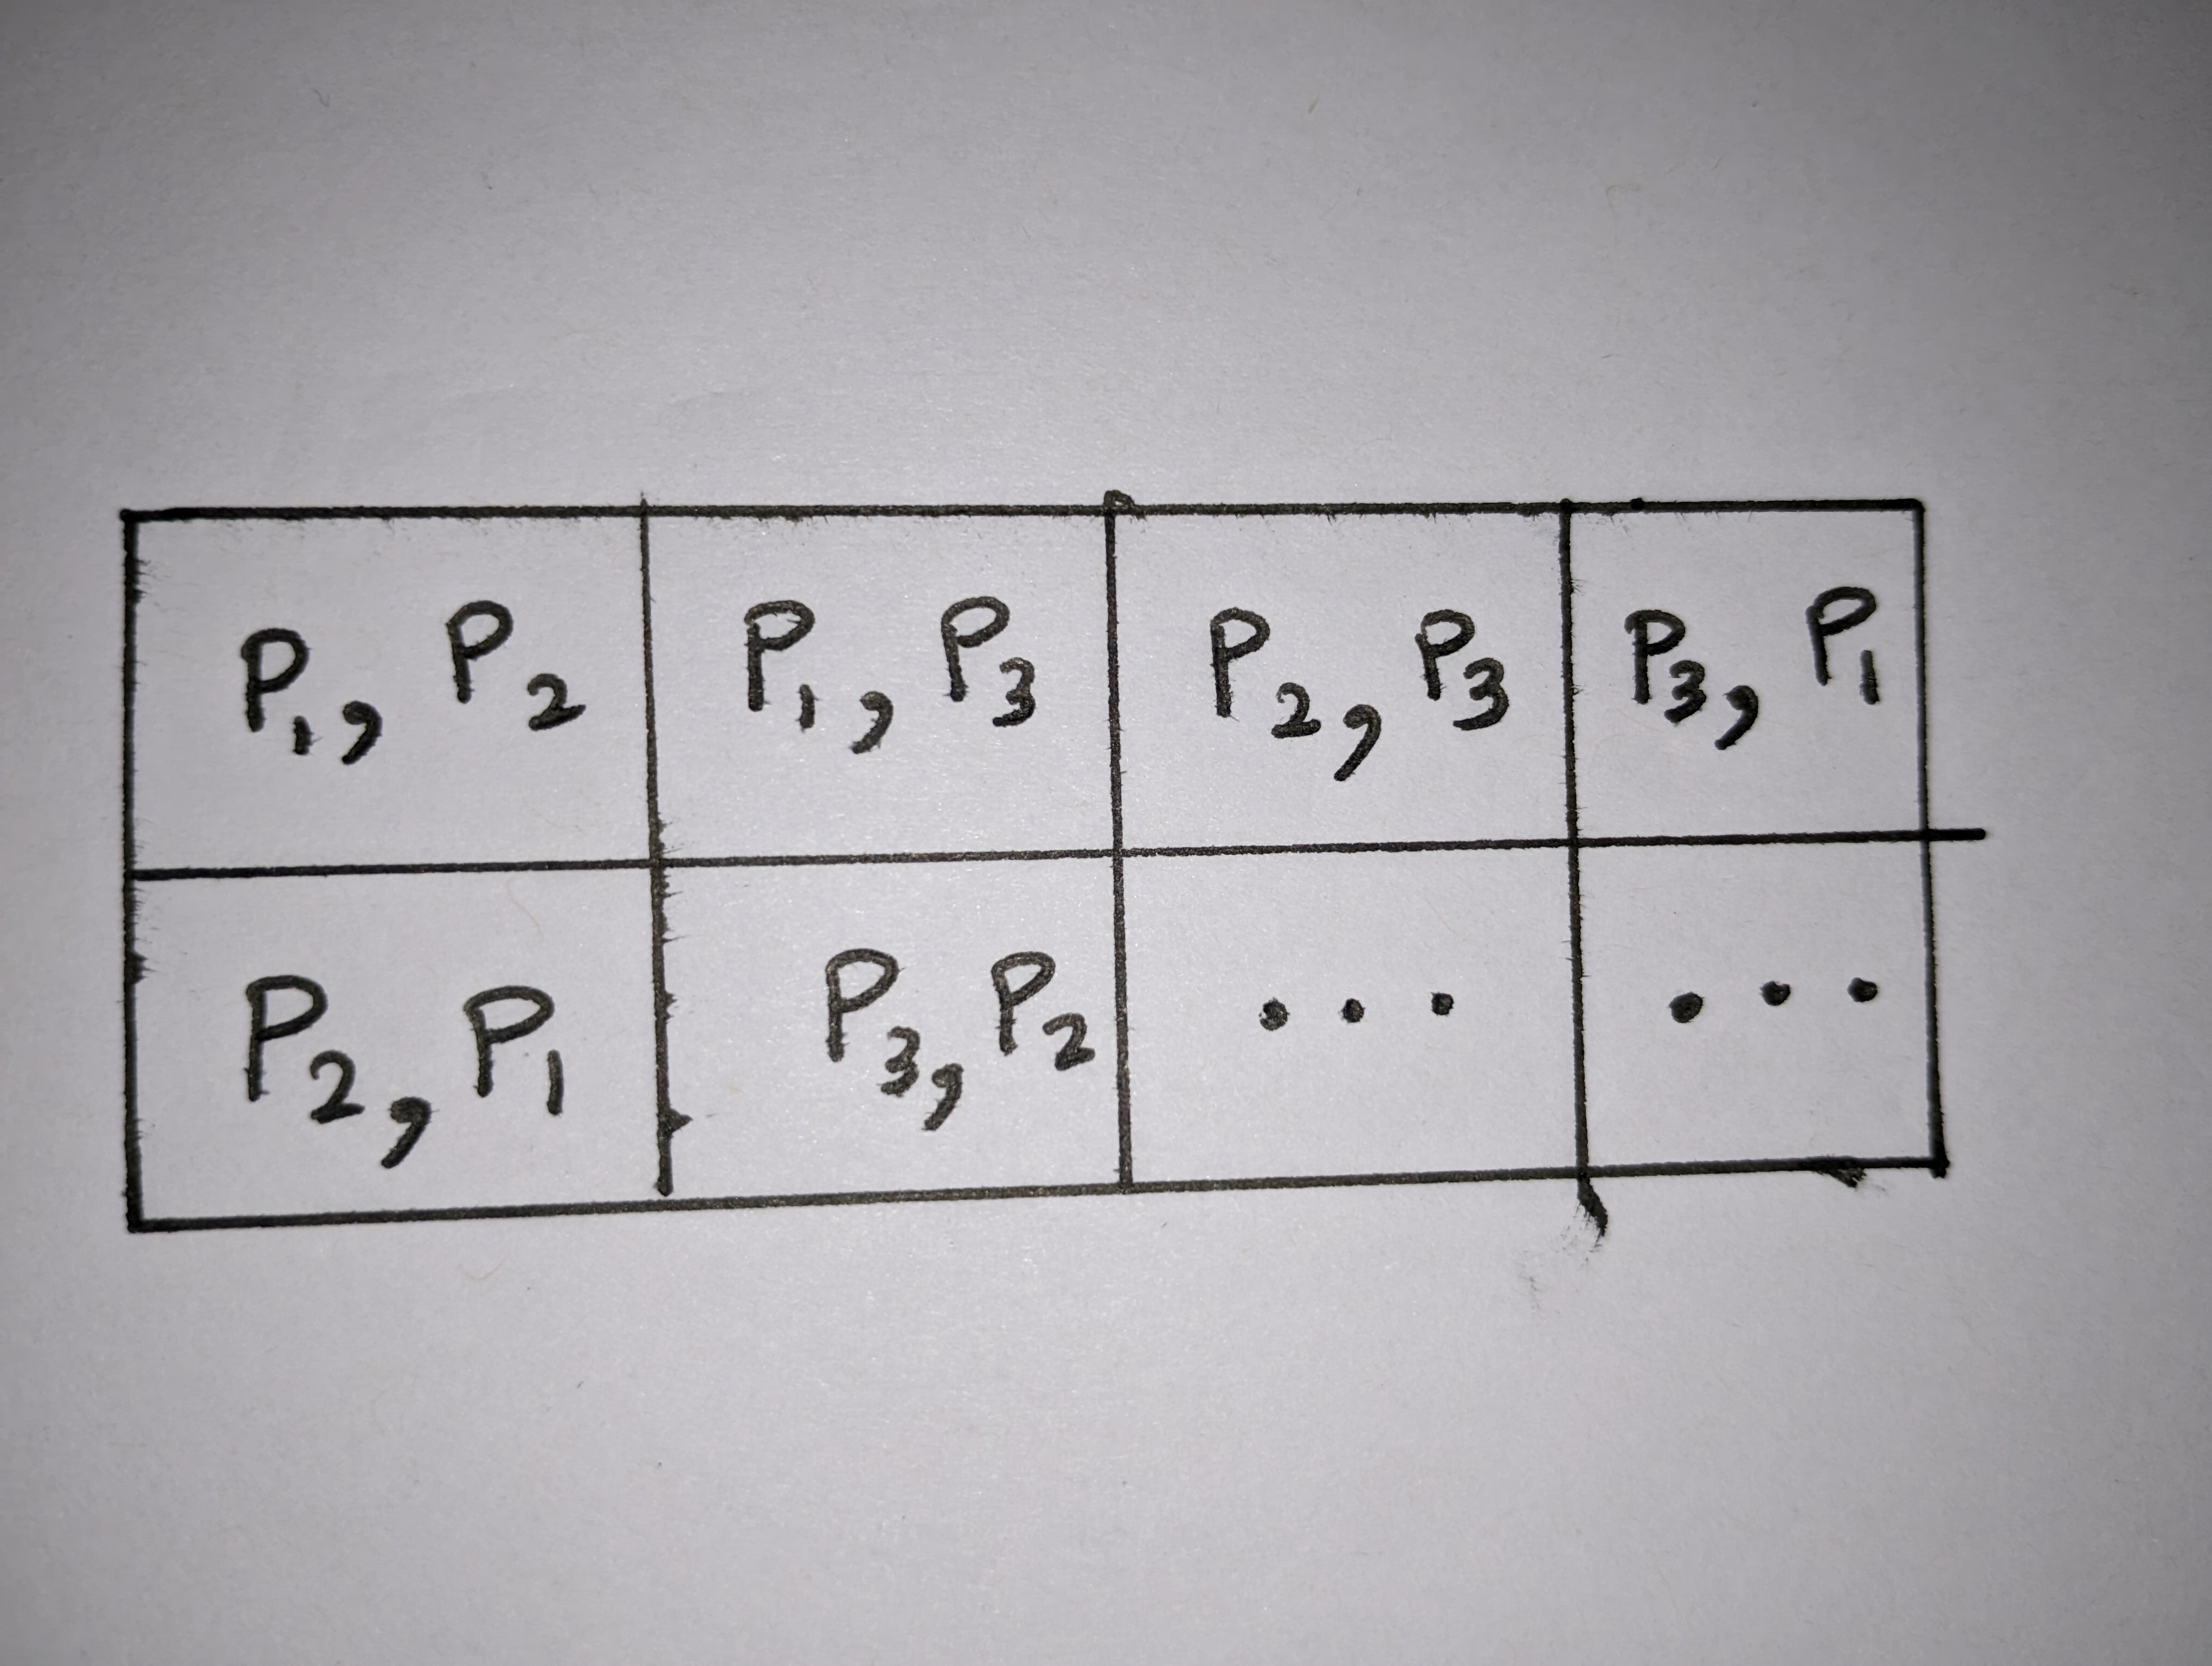 P₁, P₂ P₁, P₃ P₂, P₃ P₃, P₁
P₂, P₁ P₃, P₂ ... ...